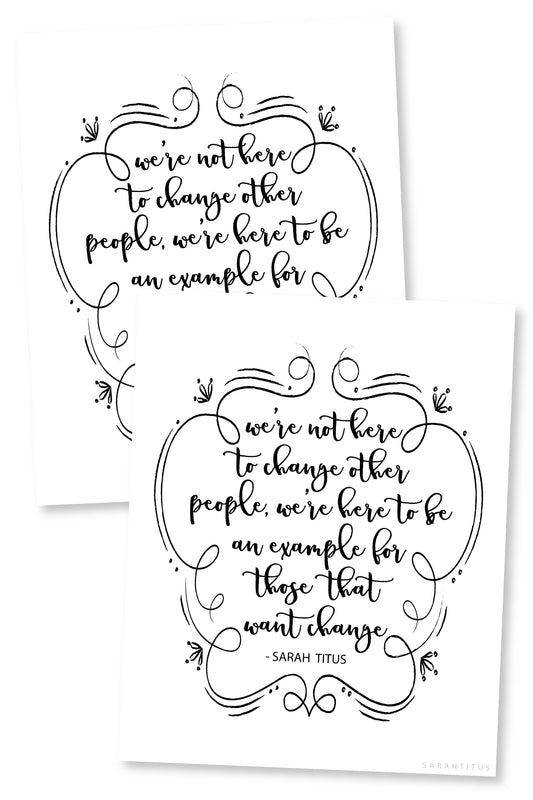 we're not here
to change other
people, we're here to be
an example for
we're not here
to change other
people, we're here to be
an example for
those that
want change
- SARAH TITUS
SARAHTITUS